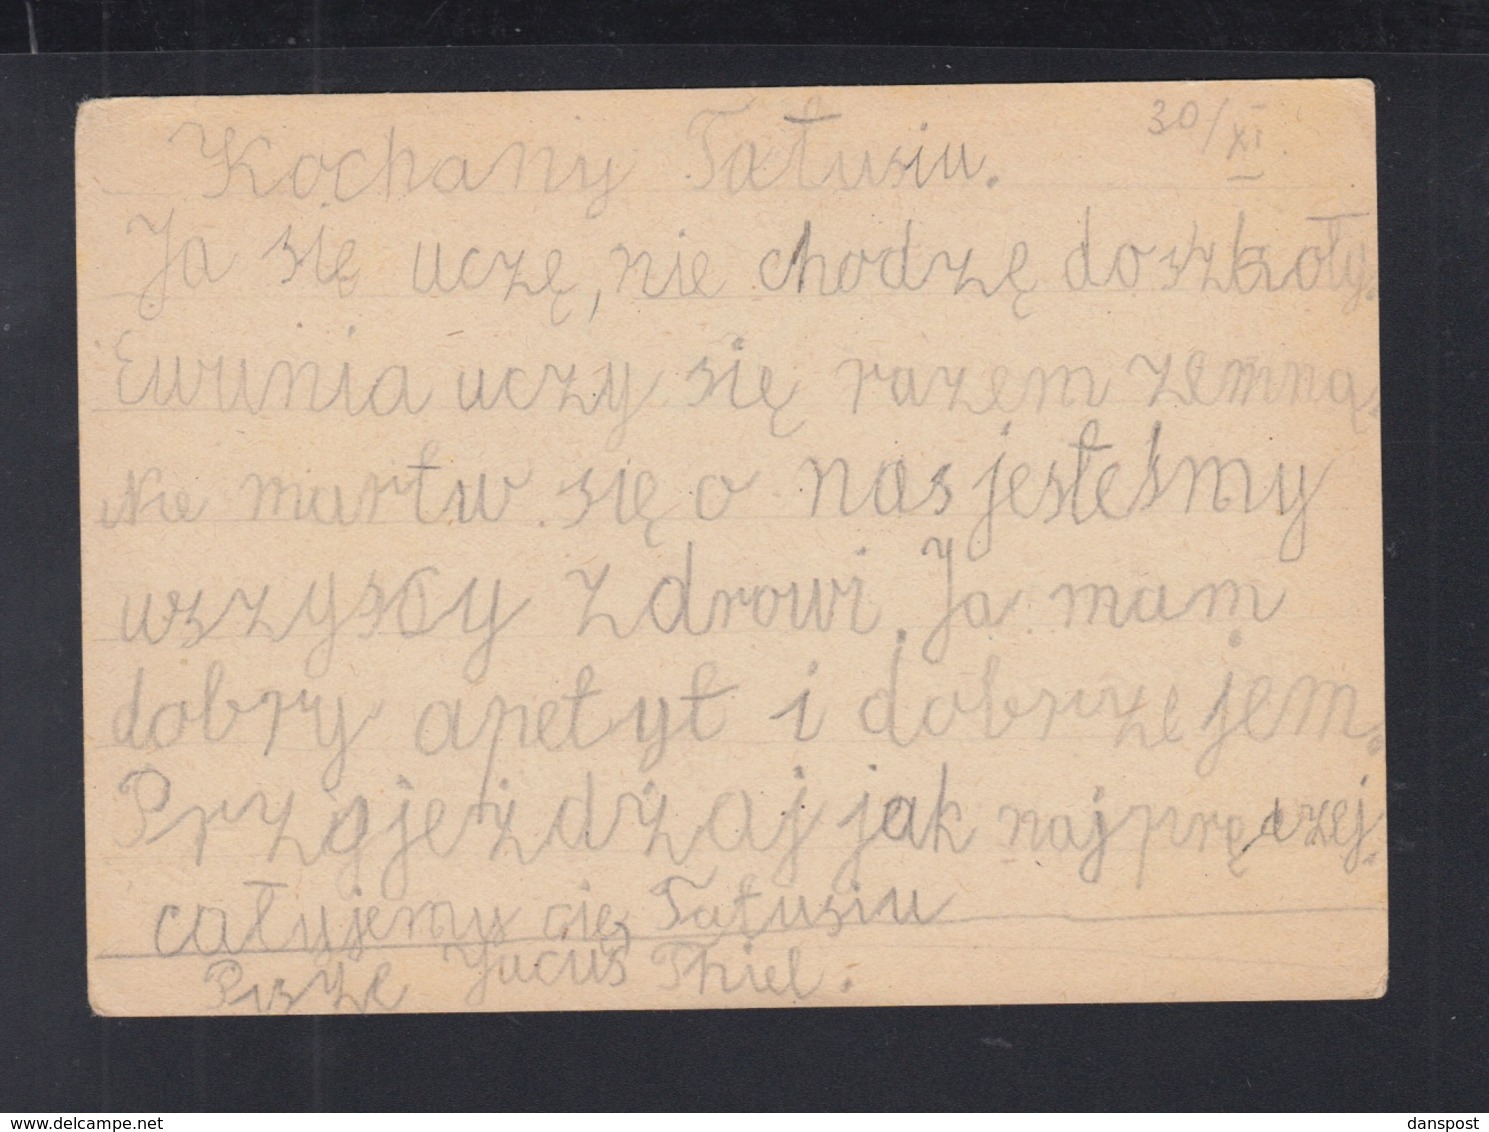 30/XI.
Kochany Tatusiu.
Ja się uczę, nie chodzę do szkoły.
Ewunia uczy się razem zemną.
Nie martw się o nas jesteśmy
wszyscy zdrowi. Ja mam
dobry apetyt i dobrze jem.
Przyjeżdżaj jak najprędzej.
całujemy cię, Tatusiu
Pisze Jucuś Thiel.
danspost
www.delcampe.net